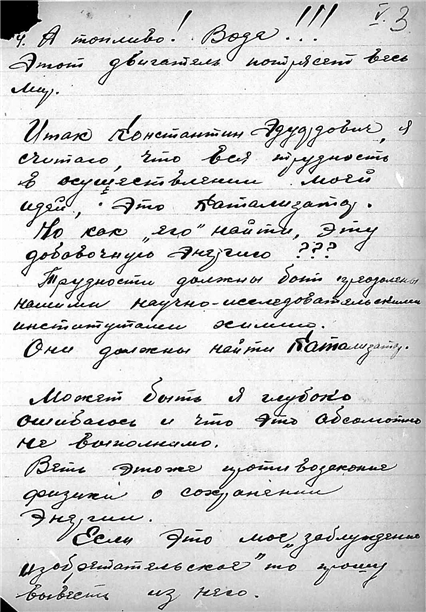 V.3
4. А топливо! Вода!!!
Этот двигатель потрясет весь
мир.
Итак Константин Эдуардович, я
считаю, что вся трудность
в осуществлении моей
идеи, это катализатор.
Но как "его" найти, эту
добавочную Энергию ???
Трудности должны быть преодолены
нашими научно-исследовательскими
институтами химии.
Они должны найти Катализатор.
Может быть я глубоко
ошибаюсь и что это абсолютно
не выполнимо.
Веть этоже противозаконие
физики о сохранении
Энергии.
Если это мое "заблуждение
изобретательское" то прошу
вывести из него.